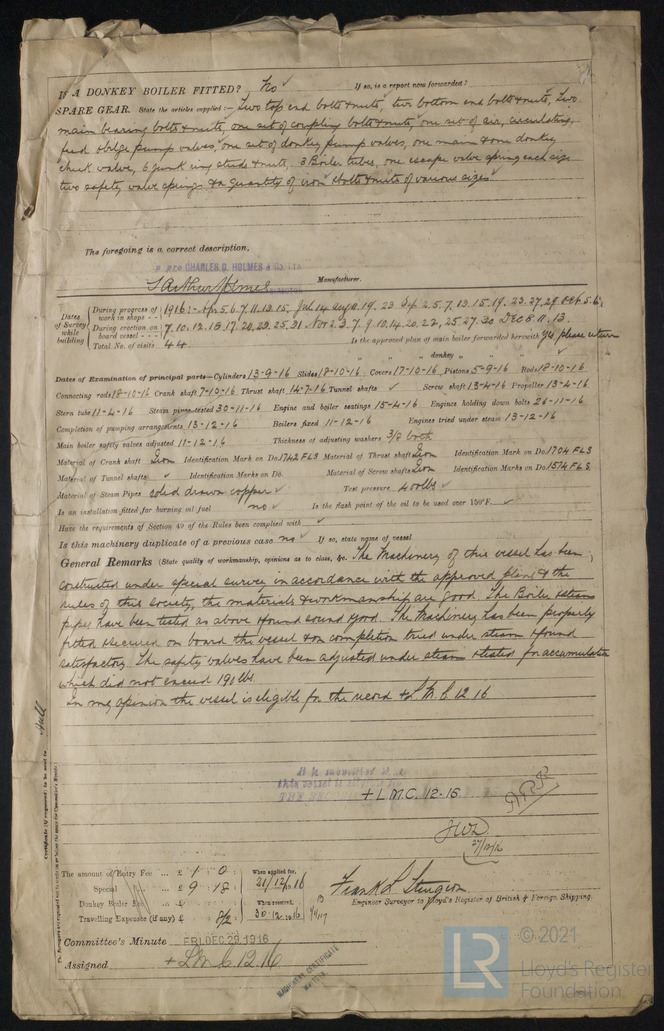 IS A DONKEY BOILER FITTED? No ✓ If so, is a report now forwarded?
SPARE GEAR. State the articles supplied:— Two top end bolts & nuts, two bottom end bolts & nuts, two
main bearing bolts & nuts, one set of coupling bolts & nuts, one set of air, circulating,
feed & bilge pump valves, one set of donkey pump valves, one main & one donkey
check valve, 6 junk ring studs & nuts, 3 Boiler tubes, one escape valve spring each size
two safety valve springs & a quantity of iron & bolts & nuts of various sizes.
The foregoing is a correct description,
CHARLES D. HOLMES & CO. LTD
Arthur Holmes Manufacturer.
Dates of Survey while building
During progress of work in shops - - 1916:- Apr 5. 6. 7. 11. 13. 15, Jul 14 Aug 11. 19. 23 Sep 2. 5. 7. 13. 15. 19. 23. 27. 29 Oct 5. 6.
During erection on board vessel - - - 7. 10. 12. 13. 17. 20. 23. 25. 31. Nov 2. 3. 7. 9. 10. 14. 20. 22, 25. 27. 30 Dec 8. 11. 13.
Total No. of visits 44 Is the approved plan of main boiler forwarded herewith Yes please return
" " " donkey " " "
Dates of Examination of principal parts—Cylinders 13-9-16 Slides 18-10-16 Covers 17-10-16 Pistons 5-9-16 Rods 18-10-16
Connecting rods 18-10-16 Crank shaft 7-10-16 Thrust shaft 14-7-16 Tunnel shafts ✓ Screw shaft 13-4-16 Propeller 13-4-16
Stern tube 11-4-16 Steam pipes tested 30-11-16 Engine and boiler seatings 15-4-16 Engines holding down bolts 26-11-16
Completion of pumping arrangements 13-12-16 Boilers fixed 11-12-16 Engines tried under steam 13-12-16
Main boiler safety valves adjusted 11-12-16 Thickness of adjusting washers 3/8 both
Material of Crank shaft Iron Identification Mark on Do. 1742 FLS Material of Thrust shaft Iron Identification Mark on Do. 1704 FLS
Material of Tunnel shafts ✓ Identification Marks on Do. Material of Screw shafts Iron Identification Marks on Do. 1574 FLS.
Material of Steam Pipes solid drawn copper ✓ Test pressure 400 lbs ✓
Is an installation fitted for burning oil fuel no ✓ Is the flash point of the oil to be used over 150°F. ✓
Have the requirements of Section 49 of the Rules been complied with ✓
Is this machinery duplicate of a previous case no ✓ If so, state name of vessel
General Remarks (State quality of workmanship, opinions as to class, &c. The Machinery of this vessel has been
constructed under special survey in accordance with the approved plans & the
rules of this society, the materials & workmanship are good. The Boiler & steam
pipes have been tested as above & found sound & good. The Machinery has been properly
fitted & secured on board the vessel & on completion tried under steam & found
satisfactory. The safety valves have been adjusted under steam & tested for accumulation
which did not exceed 190 lbs.
In my opinion the vessel is eligible for the record + L.M.C. 12.16
Certificate (if required) to be sent to Hull
It is submitted that
this vessel is eligible for
THE RECORD
+ L.M.C. 12-16.
JWD
27/12/16
The amount of Entry Fee ... £ 1 : 0 : When applied for,
Special ... £ 9 : 18 : 21/12/1916
Donkey Boiler Fee ... £ : : When received,
Travelling Expenses (if any) £ : 8/2 : 30.12.1916
Frank L Sturgeon
Engineer Surveyor to Lloyd's Register of British & Foreign Shipping.
Committee's Minute FRI. DEC. 29 1916
Assigned + L.M.C. 12.16
MACHINERY CERTIFICATE
WRITTEN.
LR © 2021
Lloyd's Register
Foundation